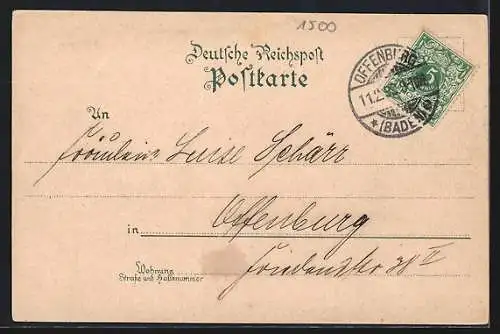 1500
Deutsche Reichspost
Postkarte
OFFENBURG
11.2.
* (BADEN)
An
Fräulein Luise Schärr
in Offenburg
Wohnung
Straße und Hausnummer